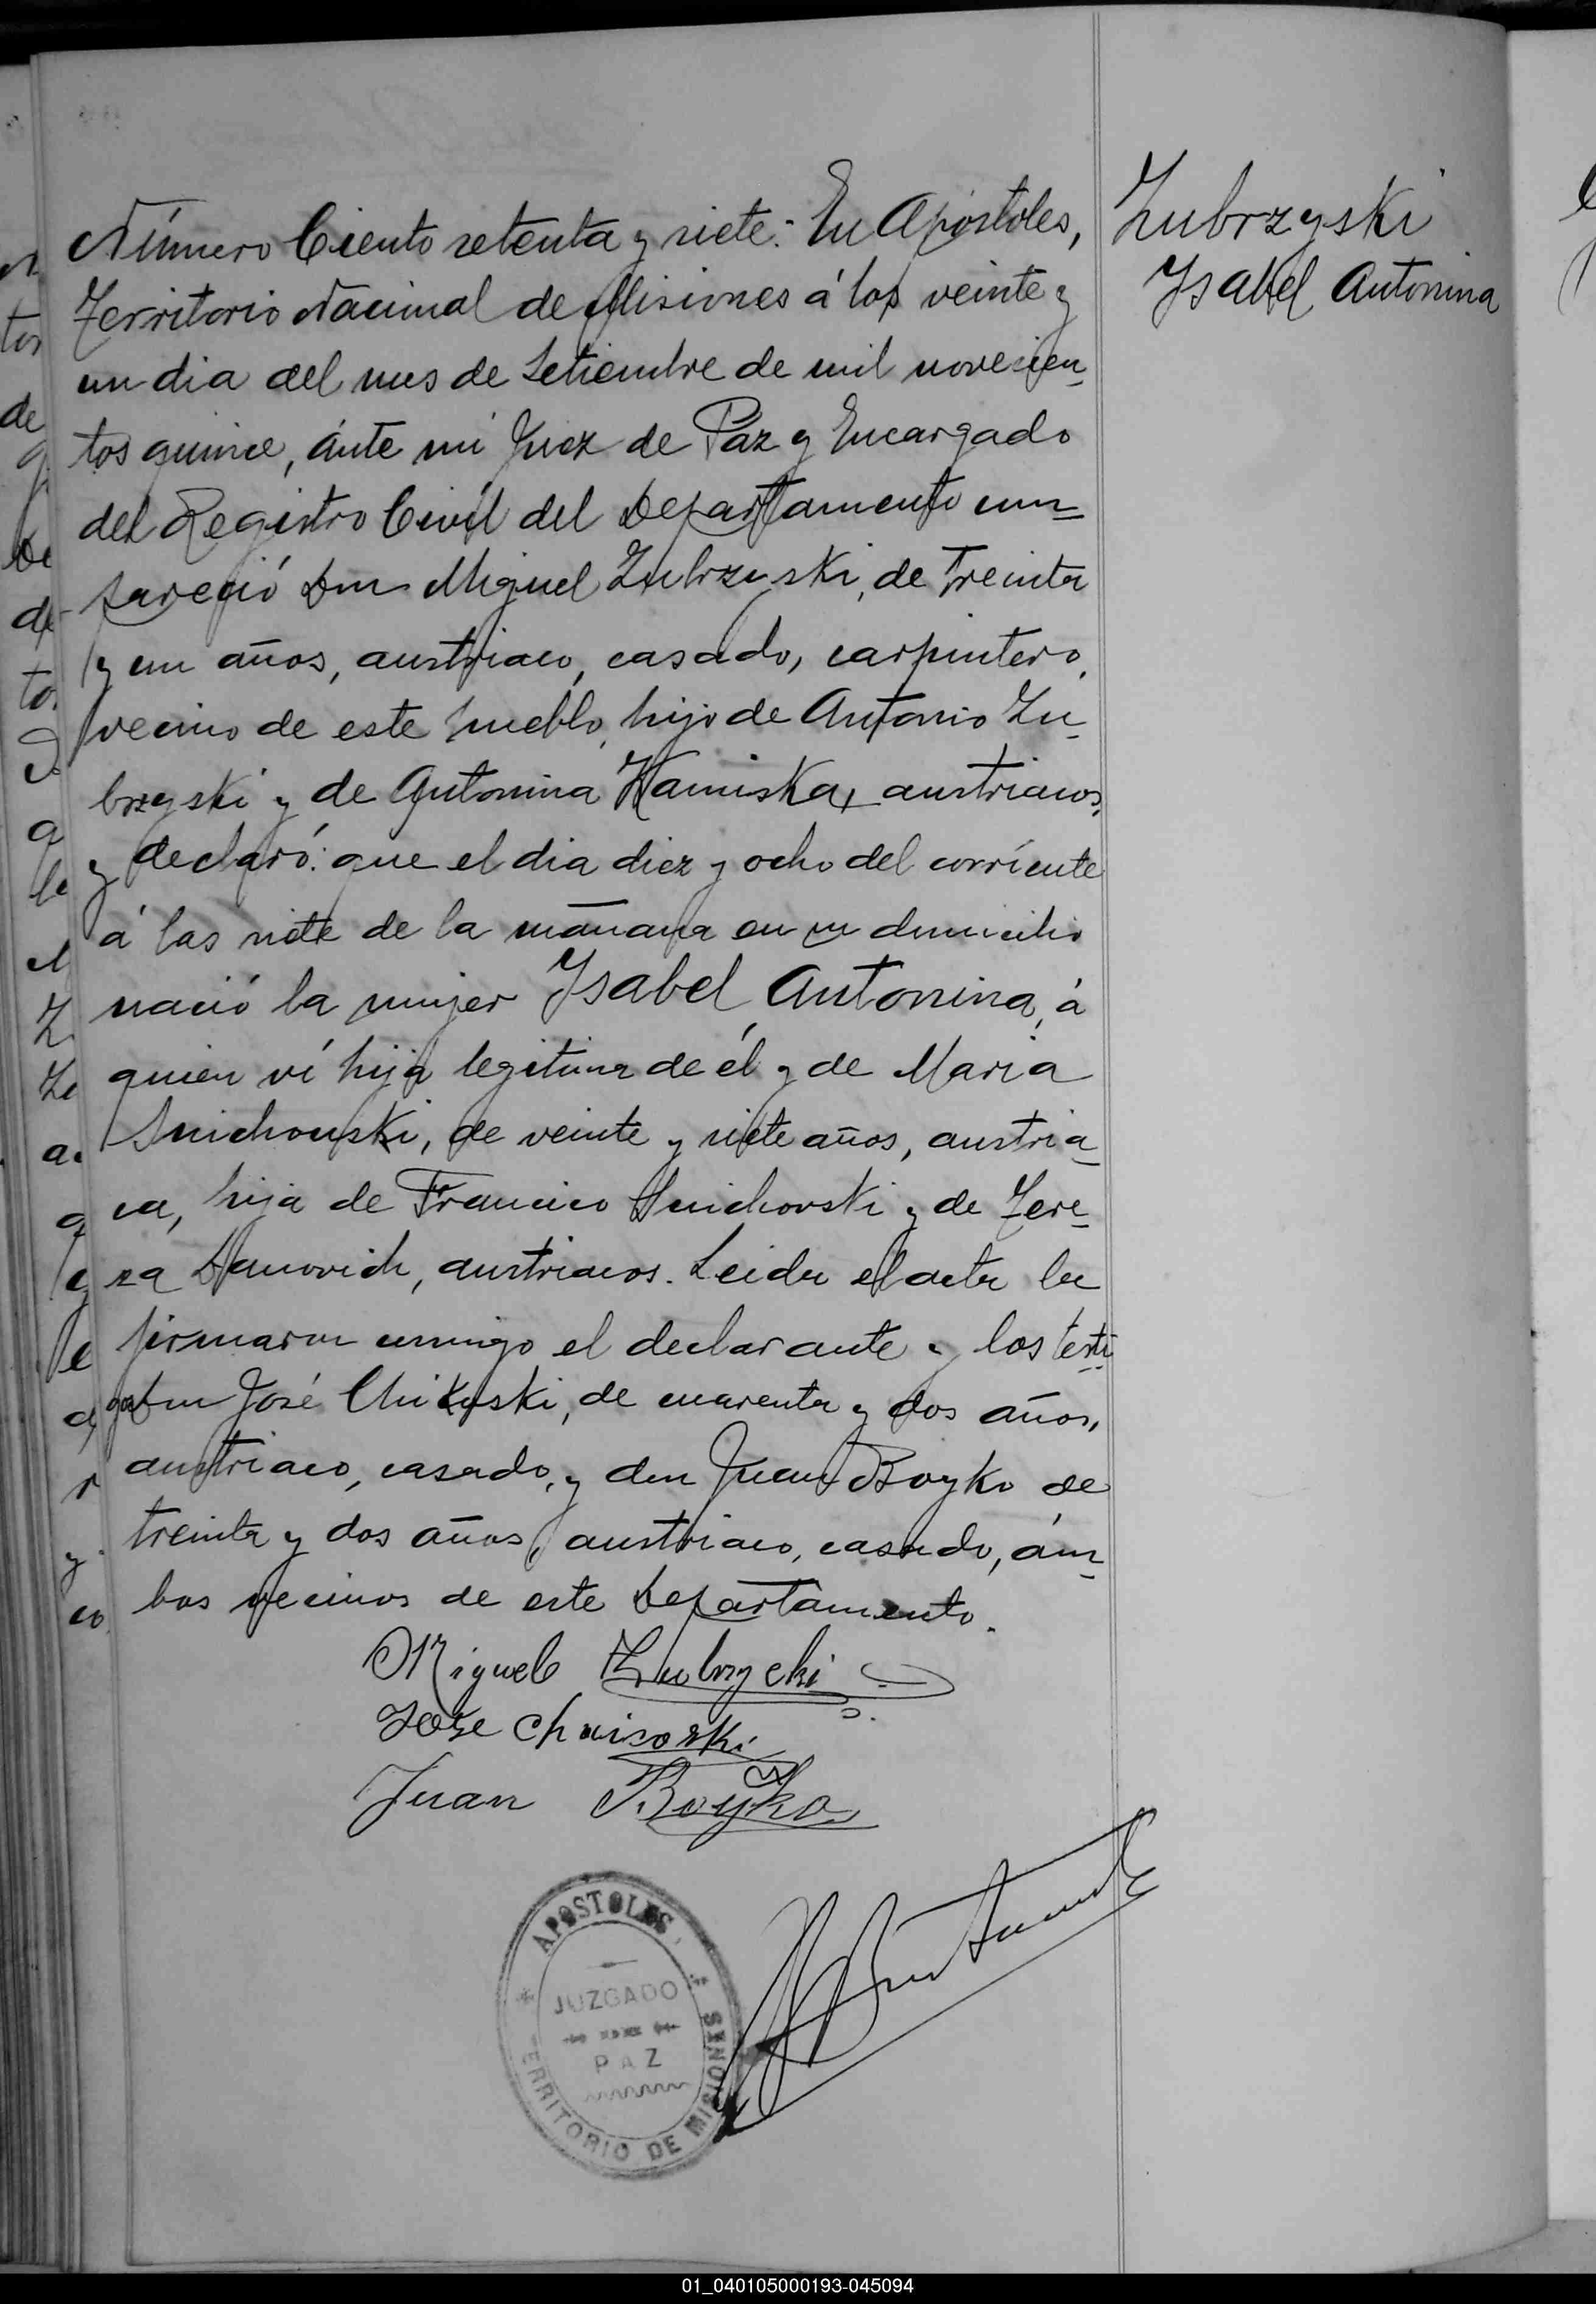 Número Ciento setenta y siete:- En Apóstoles,
Territorio Nacional de Misiones á los veinte y
un dia del mes de Setiembre de mil novecien-
tos quince, ánte mí Juez de Paz y Encargado
del Registro Civil del Departamento com-
pareció Don Miguel Zubrzyski, de treinta
y un años, austriaco, casado, carpintero,
vecino de este pueblo, hijo de Antonio Zu-
brzyski y de Antonina Kamiska, austriacos,
y declaró: que el dia diez y ocho del corriente
á las siete de la mañana en su domicilio
nació la mujer Ysabel Antonina, á
quien ví hija legitima de él y de Maria
Snichouski, de veinte y siete años, austria-
ca, hija de Francisco Snichovski y de Tere-
sa Danovich, austriacos. Leida el acta la
firmaron conmigo el declarante y los testi-
gos Don José, de cuarenta y dos años,
austriaco, casado, y don Juan Boyko de
treinta y dos años, austriaco, casado, ám-
bos vecinos de este Departamento.
Miguel Zubrzycki
Jose
Juan Boyko
Zubrzyski
Ysabel Antonina
APOSTOLES
JUZGADO
PAZ
TERRITORIO DE MISIONES
01_040105000193-045094